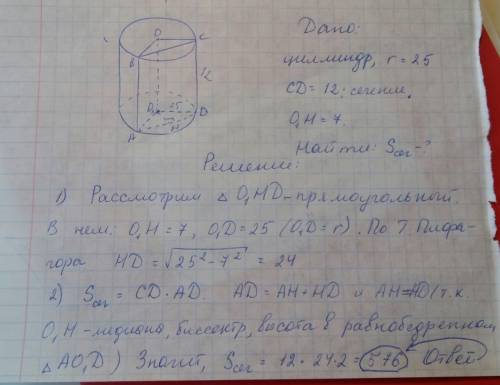 Дано:
O
C
B
циллиндр, r = 25
12
CD = 12; сечение.
O₁ 25 D
O₁H = 7.
H
A
Найти: Sсеч - ?
Решение:
1) Рассмотрим △ O₁HD - прямоугольный.
В нем: O₁H = 7, O₁D = 25 (O₁D = r). По Т. Пифа-
гора HD = √25² - 7² = 24
2) Sсеч = CD · AD. AD = AH + HD и AH = HD (т.к.
O₁H - медиана, биссектр, высота в равнобедренном
△ AO₁D) Значит, Sсеч = 12 · 24 · 2 = 576 Ответ